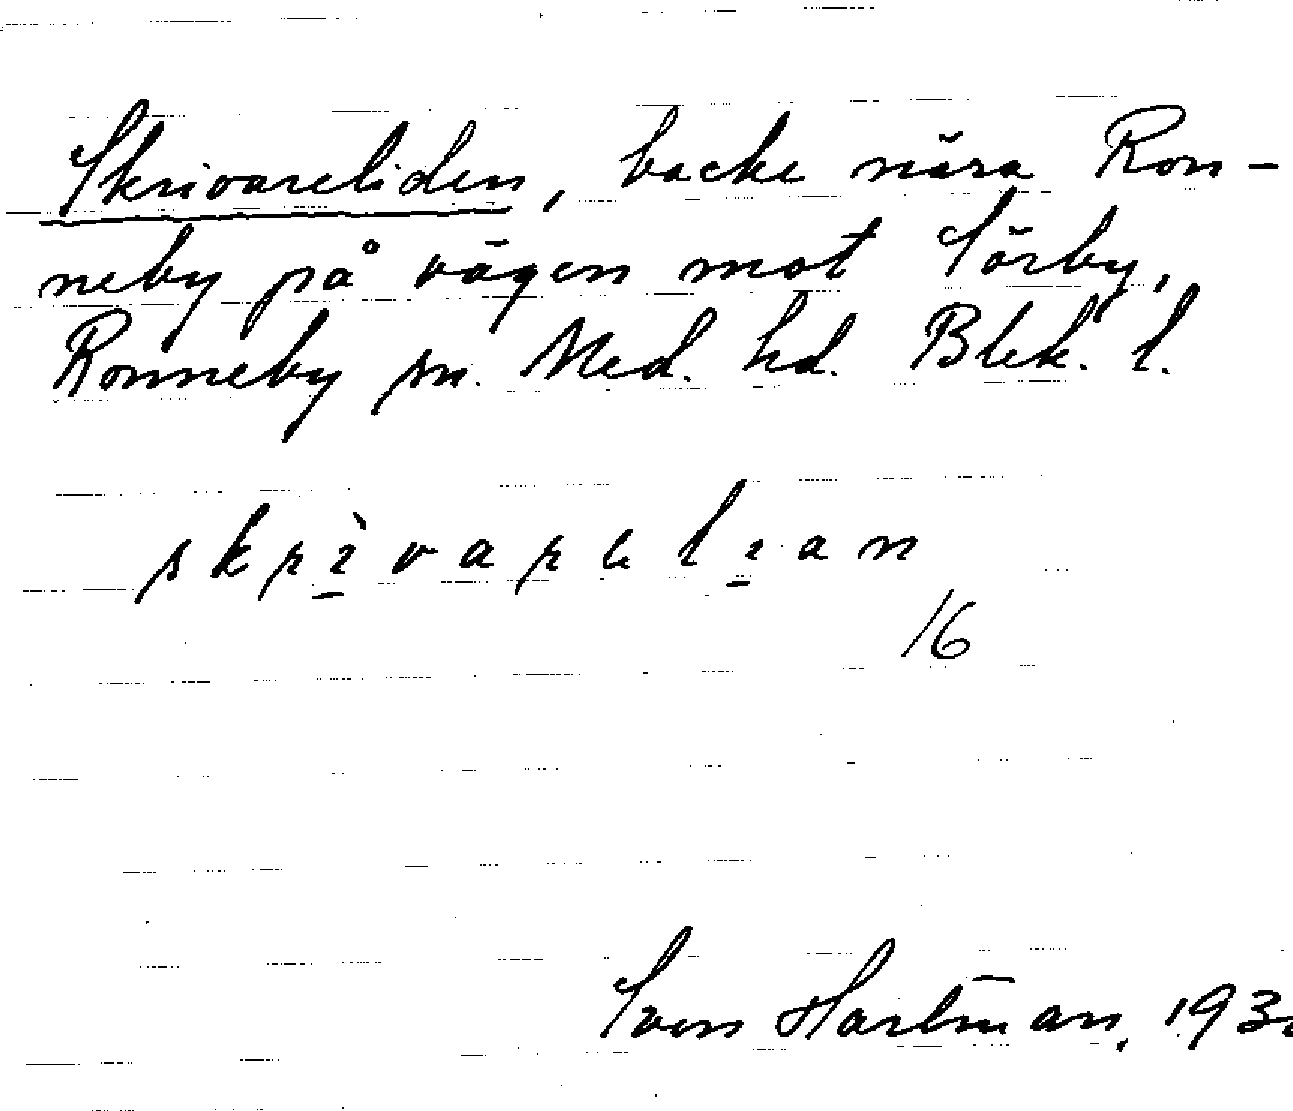 Skrivareliden, backe nära Ron-
neby på vägen mot Sörby,
Ronneby sn. Med. hd. Blek. l.
16
Sven Hartman, 193